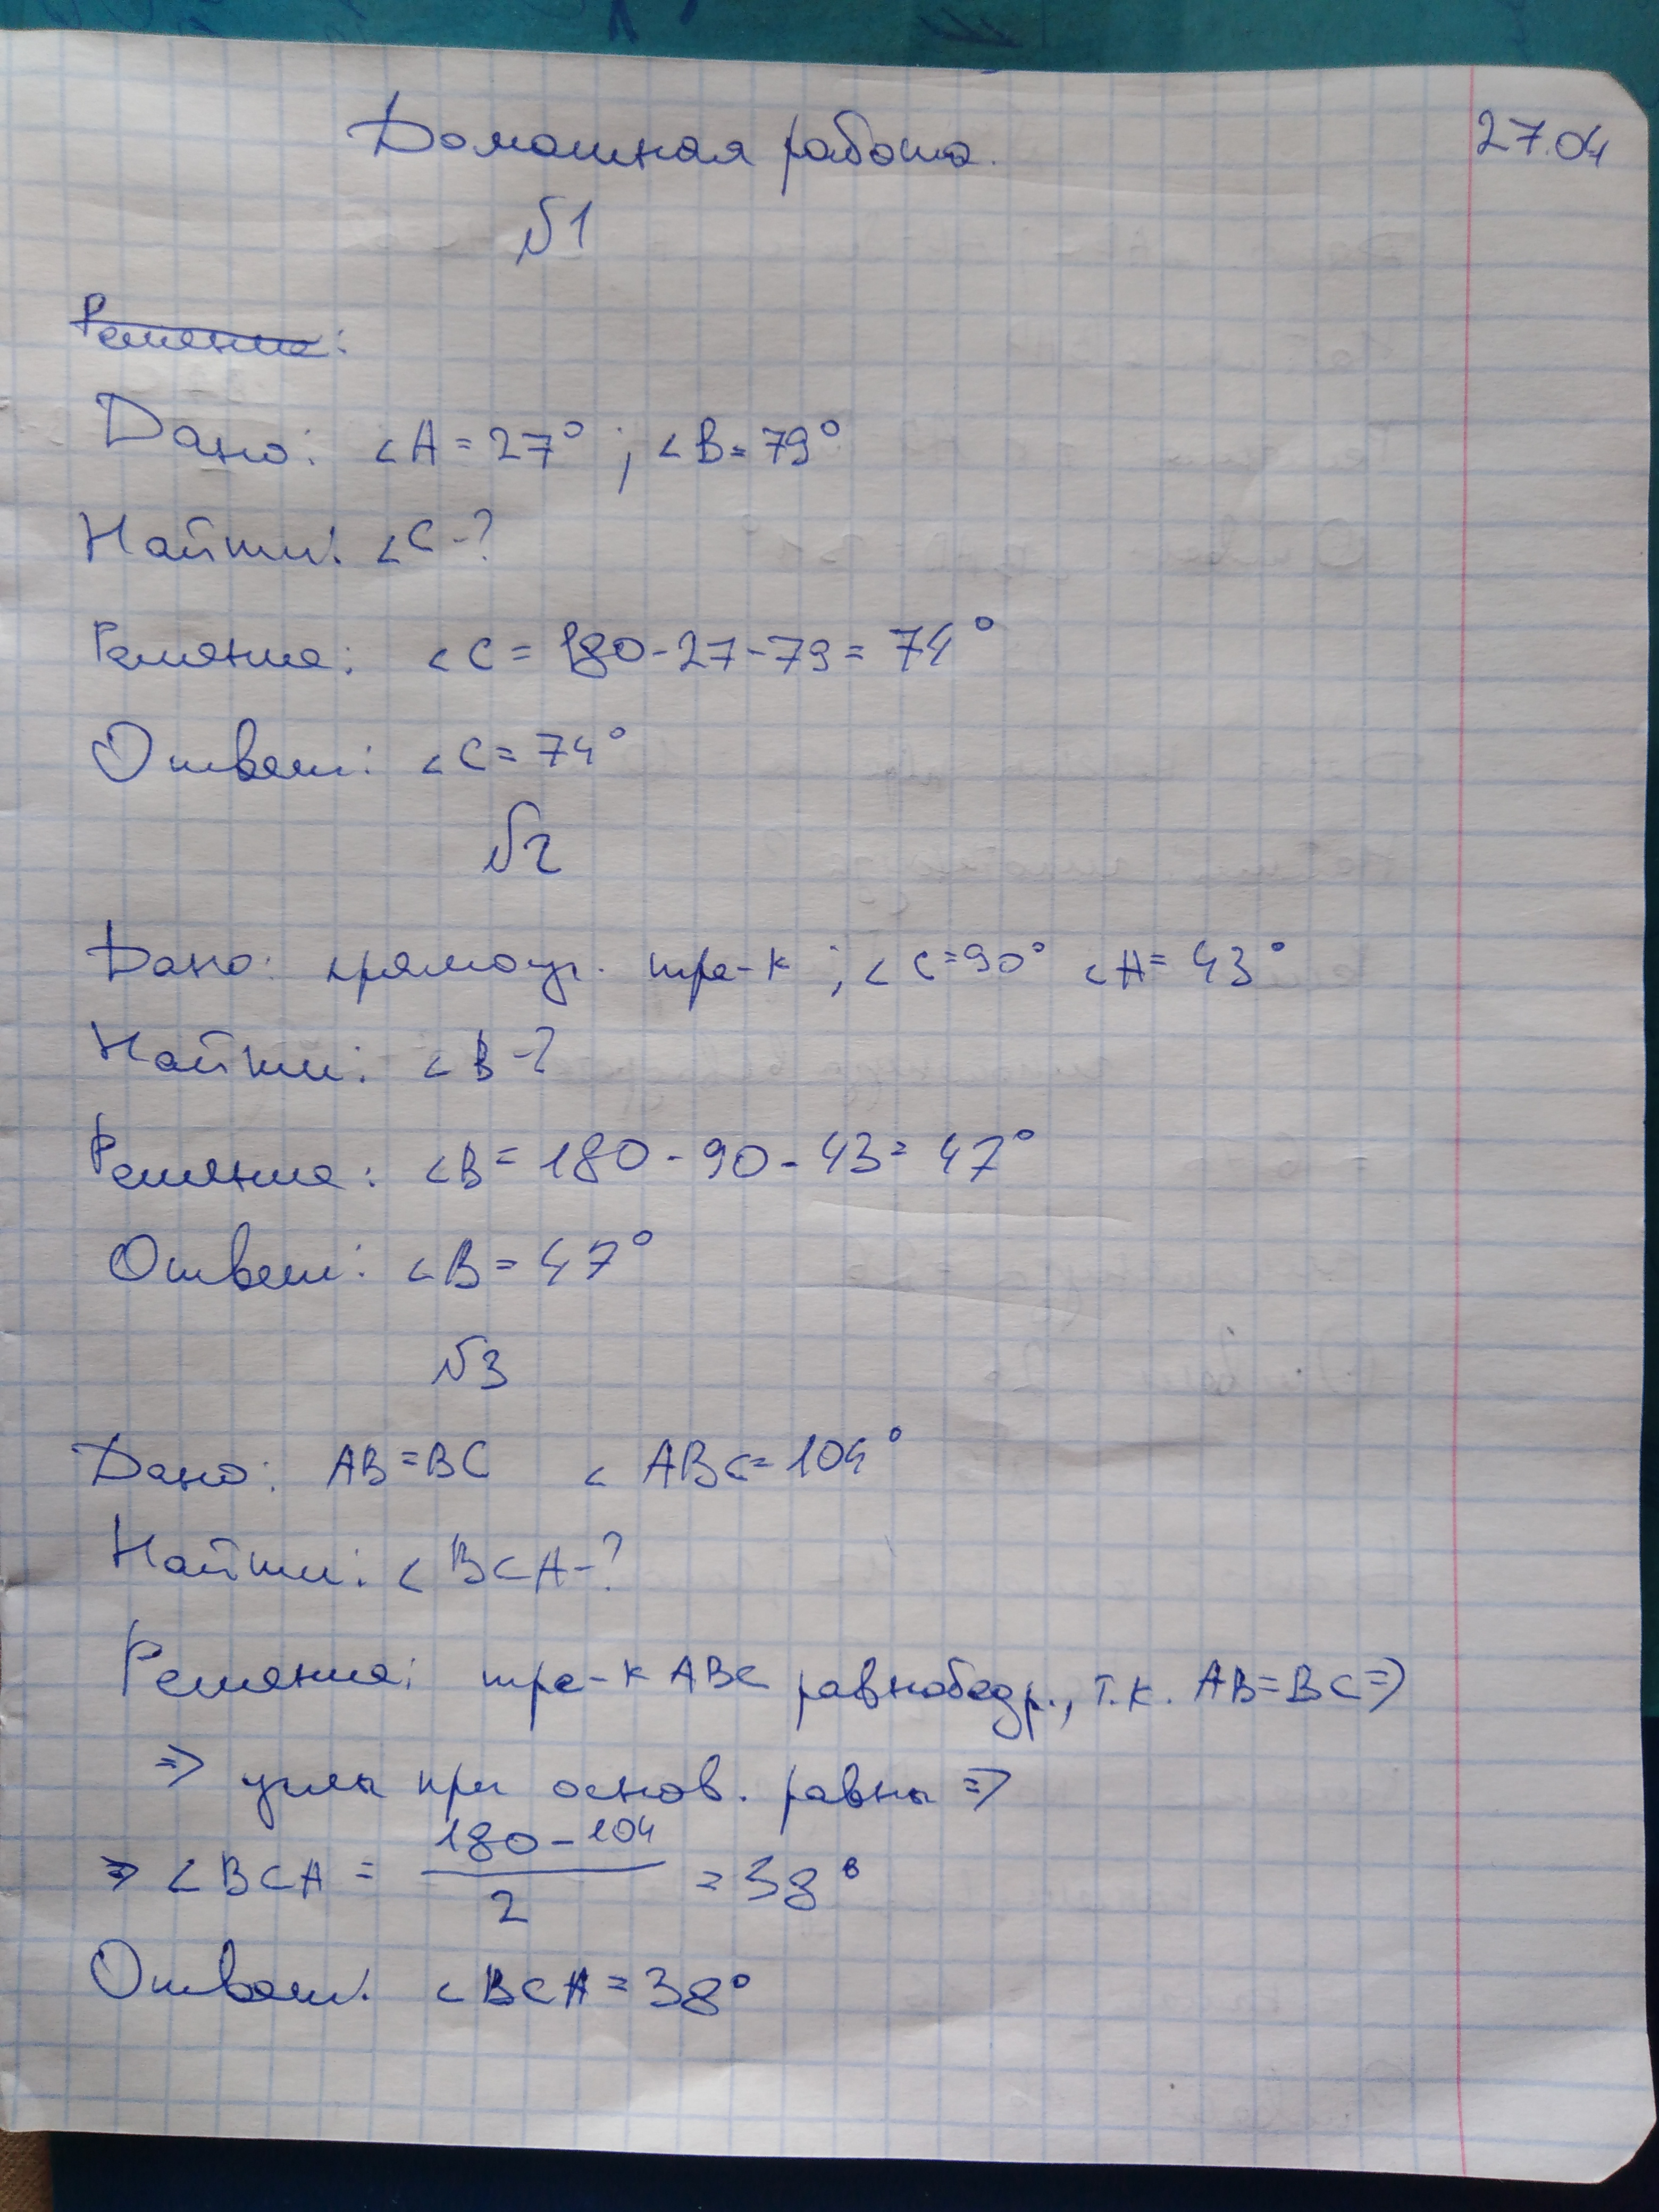 Домашная работа.
27.04
№1
Решение:
Дано: ∠A = 27° ; ∠B = 79°
Найти: ∠C -?
Решение: ∠C = 180 - 27 - 79 = 74°
Ответ: ∠C = 74°
№2
Дано: прямоуг. тре-к ; ∠C = 90° ∠A = 43°
Найти: ∠B -?
Решение: ∠B = 180 - 90 - 43 = 47°
Ответ: ∠B = 47°
№3
Дано: AB = BC ∠ABC = 104°
Найти: ∠BCA -?
Решение: тре-к ABC равнобедр., т.к. AB = BC =>
=> углы при основ. равны =>
=> ∠BCA = (180 - 104)/2 = 38°
Ответ: ∠BCA = 38°